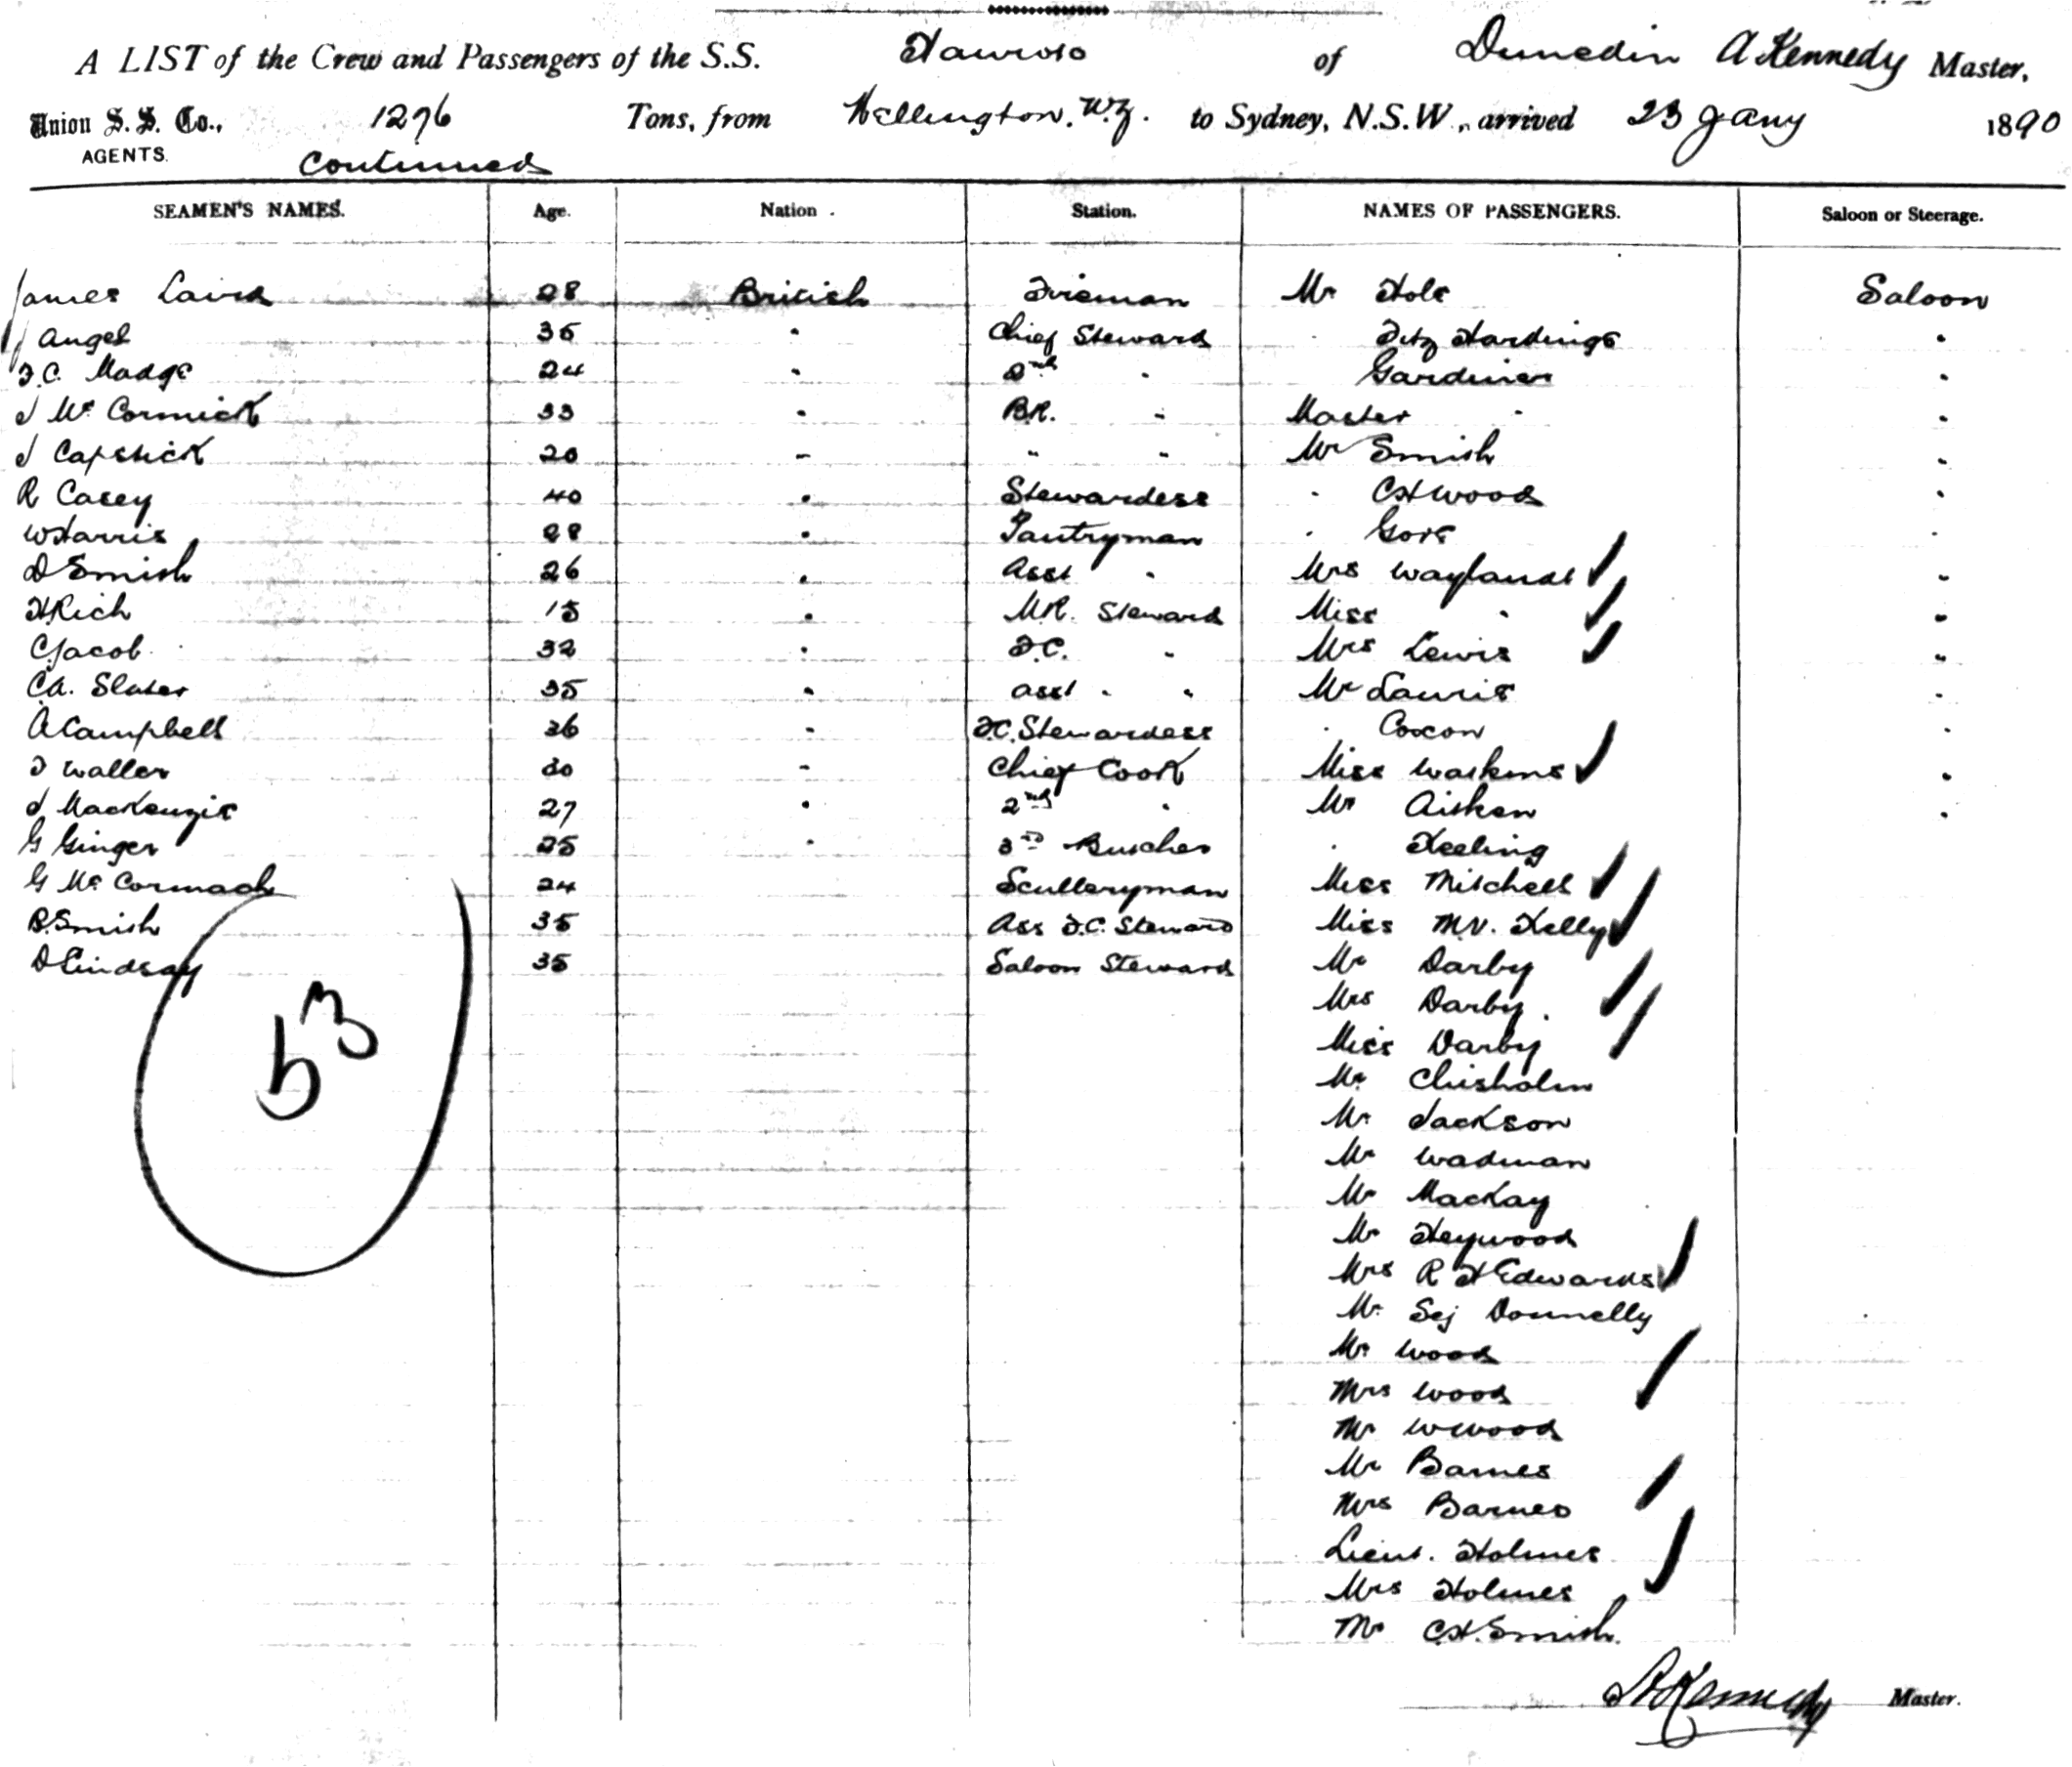 A LIST of the Crew and Passengers of the S.S. Hauroto of Dunedin A Kennedy Master,
Union S. S. Co., 1276 Tons, from Wellington. N.Z. to Sydney, N.S.W., arrived 23 Jany 1890
AGENTS.
Continued
SEAMEN'S NAMES. Age. Nation. Station. NAMES OF PASSENGERS. Saloon or Steerage.
James Laird 28 British Fireman Mr Holt Saloon
J Angel 35 " Chief Steward " Fitz Hardinge "
F.C. Madge 24 " 2nd " Gardiner "
J McCormick 33 " BR. " Master " "
J Capstick 20 " " " Mr Smith "
R Casey 40 " Stewardess " CH Wood "
W Harris 28 " Pantryman " Gore "
D Smith 26 " Asst " Mrs Wayland "
H Rich 15 " MR. Steward Miss " "
C Jacob 32 " F.C. " Mrs Lewis "
C.A. Slater 35 " asst " " Mr Laurie "
A Campbell 36 " F.C. Stewardess " Coxon "
F Waller 30 " Chief Cook Miss Watkins "
J MacKenzie 27 " 2nd " Mr Aitken "
G Ginger 25 " 3rd Butcher " Keeling
G McCormack 24 Sculleryman Miss Mitchell
B. Smith 35 Ass F.C. Steward Miss M.V. Kelly
D Lindsay 35 Saloon Steward Mr Darby
Mrs Darby.
53
Miss Darby
Mr Chisholm
Mr Jackson
Mr Wadman
Mr MacKay
Mr Heywood
Mrs R H Edwards
Mr Sej Donnelly
Mr Wood
Mrs Wood
Mr W Wood
Mr Barnes
Mrs Barnes
Lieut. Holmes
Mrs Holmes
Mr C.H. Smith.
A Kennedy Master.